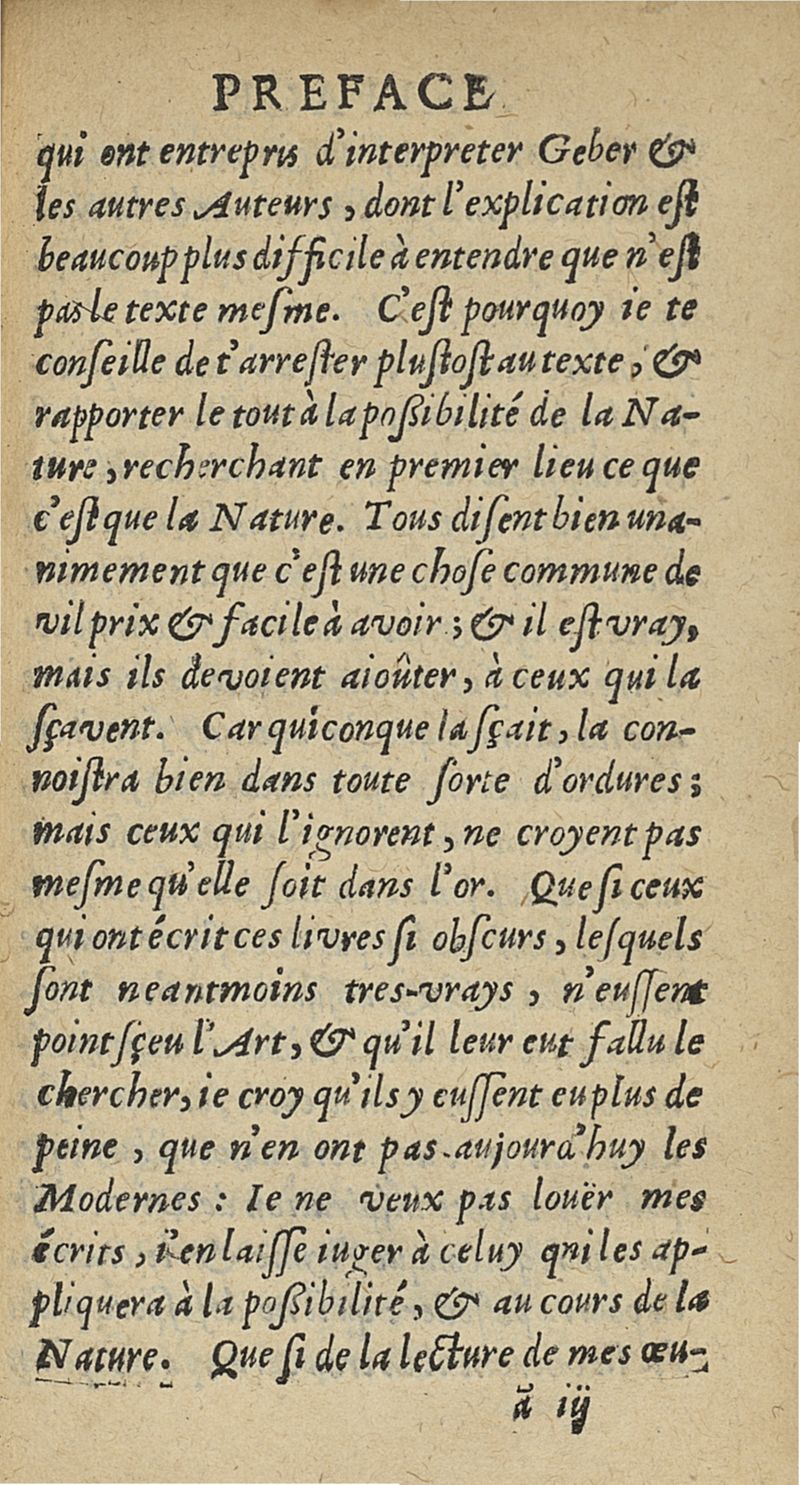 PREFACE
qui ont entrepris d'interpreter Geber &
les autres Auteurs, dont l'explication eſt
beaucoup plus difficile à entendre que n'eſt
pas le texte meſme. C'eſt pourquoy ie te
conſeille de t'arreſter pluſtoſt au texte, &
rapporter le tout à la poßibilité de la Na-
ture, recherchant en premier lieu ce que
c'eſt que la Nature. Tous diſent bien una-
nimement que c'eſt une choſe commune de
vil prix & facile à avoir; & il eſt vray,
mais ils devoient aioûter, à ceux qui la
ſçavent. Car quiconque la ſçait, la con-
noiſtra bien dans toute ſorte d'ordures;
mais ceux qui l'ignorent, ne croyent pas
meſme qu'elle ſoit dans l'or. Que ſi ceux
qui ont écrit ces livres ſi obſcurs, leſquels
ſont neantmoins tres-vrays, n'euſſent
point ſçeu l'Art, & qu'il leur eut fallu le
chercher, ie croy qu'ils y euſſent eu plus de
peine, que n'en ont pas aujourd'huy les
Modernes: Ie ne veux pas louër mes
écrits, i'en laiſſe iuger à celuy qni les ap-
pliquera à la poßibilité, & au cours de la
Nature. Que ſi de la lecture de mes œu-
ã iij